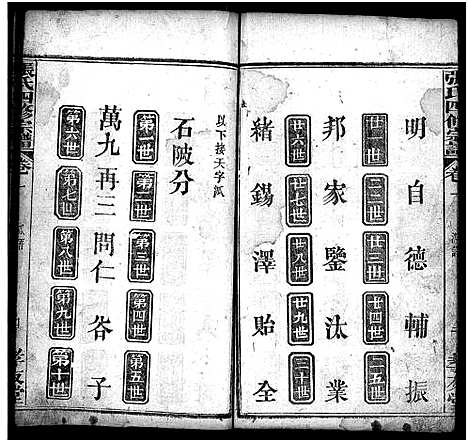 張氏四修宗譜 卷一
明自德輔振
廿一世 廿二世 廿三世 廿四世 廿五世
邦家鑒汰業
廿六世 廿七世 廿八世 廿九世 三十世
緒錫澤貽全
以下接天字派
石陂分
第一世 第二世 第三世 第四世 第五世
萬九再三問仁峇子
第六世 第七世 第八世 第九世 第十世
張氏四修宗譜 卷一
孝友堂